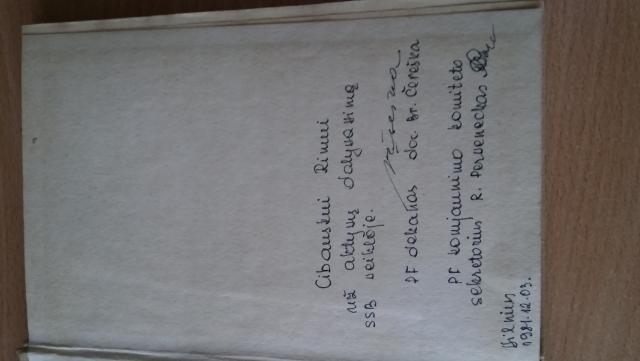 Cibauskui Rimui
už aktyvų dalyvavimą
SSB veikloje.
PF dekanas doc. Br. Čereška
PF komjaunimo komiteto
sekretorius R. Perveneckas
Vilnius
1981.12.03.